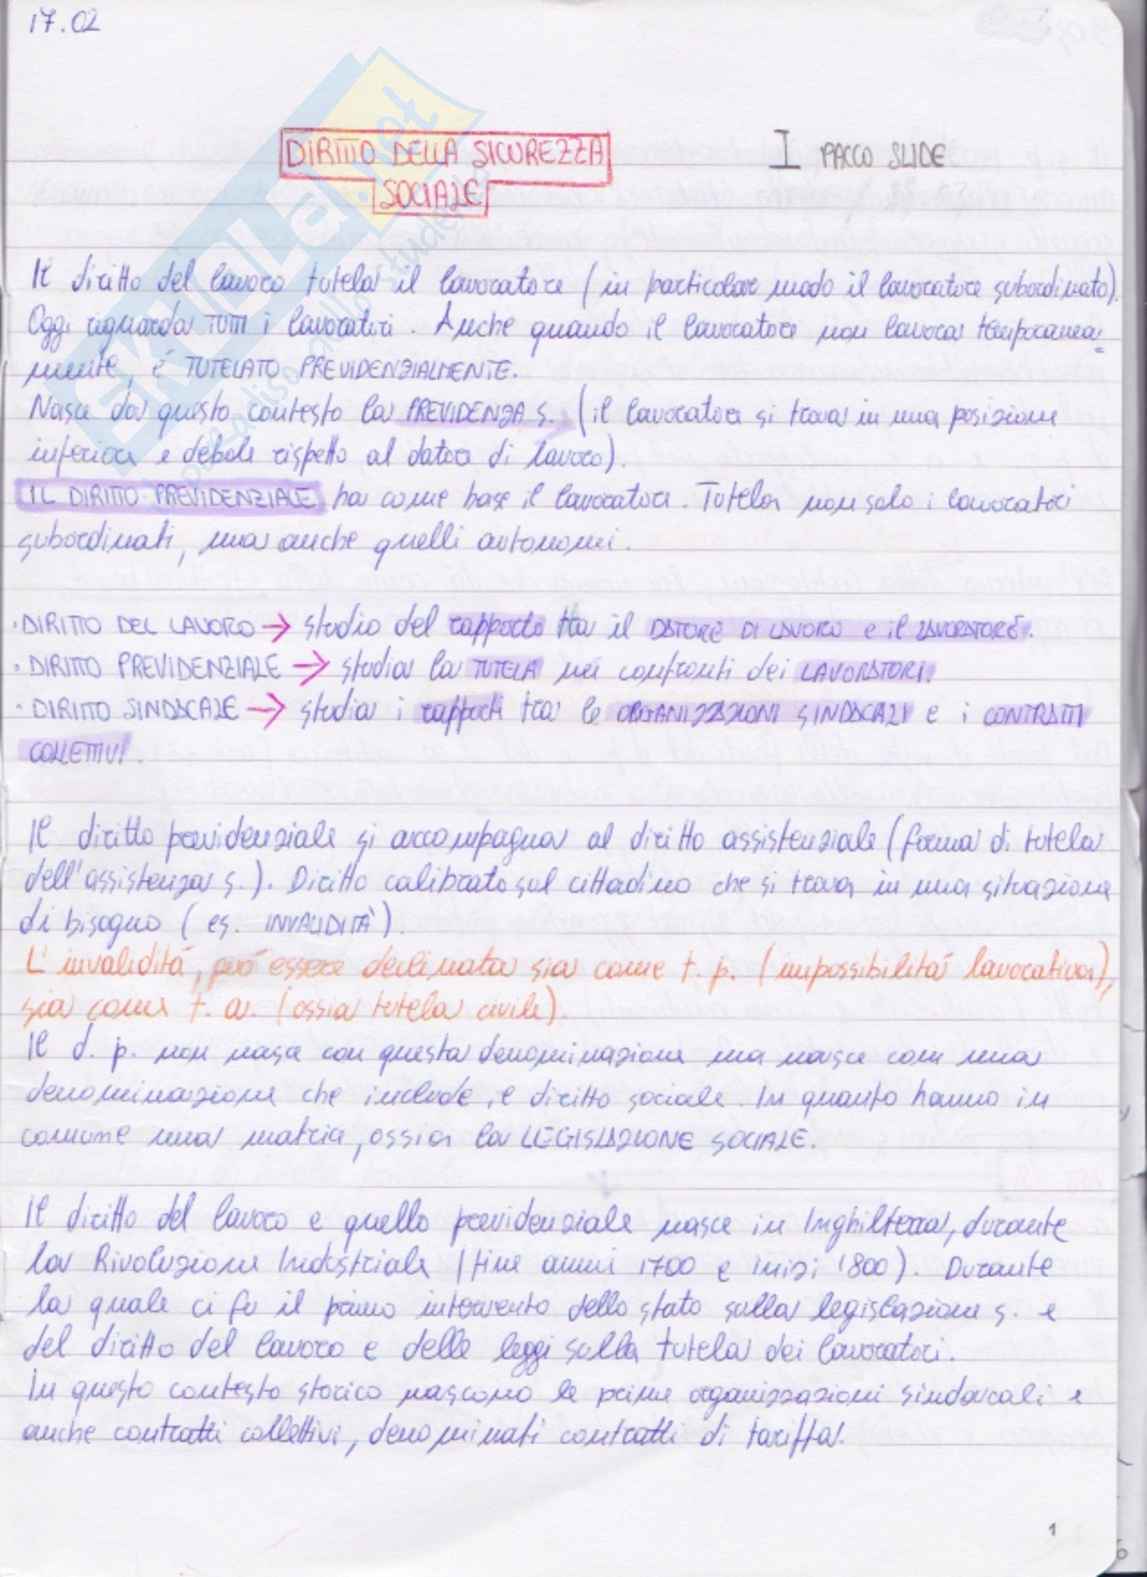 17.02
DIRITTO DELLA SICUREZZA
SOCIALE
I PACCO SLIDE
SKUOLA.net
Il diritto del lavoro tutela il lavoratore (in particolar modo il lavoratore subordinato).
Oggi riguarda TUTTI i lavoratori. Anche quando il lavoratore non lavora temporanea=
mente, è TUTELATO PREVIDENZIALMENTE.
Nasce da questo contesto la PREVIDENZA s. (il lavoratore si trova in una posizione
inferiore e debole rispetto al datore di lavoro).
IL DIRITTO PREVIDENZIALE ha come base il lavoratore. Tutela non solo i lavoratori
subordinati, ma anche quelli autonomi.
· DIRITTO DEL LAVORO → studio del rapporto tra il DATORE DI LAVORO e il LAVORATORE.
· DIRITTO PREVIDENZIALE → studia la TUTELA nei confronti dei LAVORATORI.
· DIRITTO SINDACALE → studia i rapporti tra le ORGANIZZAZIONI SINDACALI e i CONTRATTI
COLLETTIVI.
Il diritto previdenziale si accompagna al diritto assistenziale (forma di tutela
dell'assistenza s.). Diritto calibrato sul cittadino che si trova in una situazione
di bisogno (es. INVALIDITÀ).
L'invalidità, può essere declinata sia come t. p. (impossibilità lavorativa),
sia come t. a. (ossia tutela civile).
Il d. p. non nasce con questa denominazione ma nasce con una
denominazione che include, e diritto sociale. In quanto hanno in
comune una materia, ossia la LEGISLAZIONE SOCIALE.
Il diritto del lavoro e quello previdenziale nasce in Inghilterra, durante
la Rivoluzione Industriale (fine anni 1700 e inizi 1800). Durante
la quale ci fu il primo intervento dello stato sulla legislazione s. e
del diritto del lavoro e delle leggi sulla tutela dei lavoratori.
In questo contesto storico nascono le prime organizzazioni sindacali e
anche contratti collettivi, denominati contratti di tariffa.
1